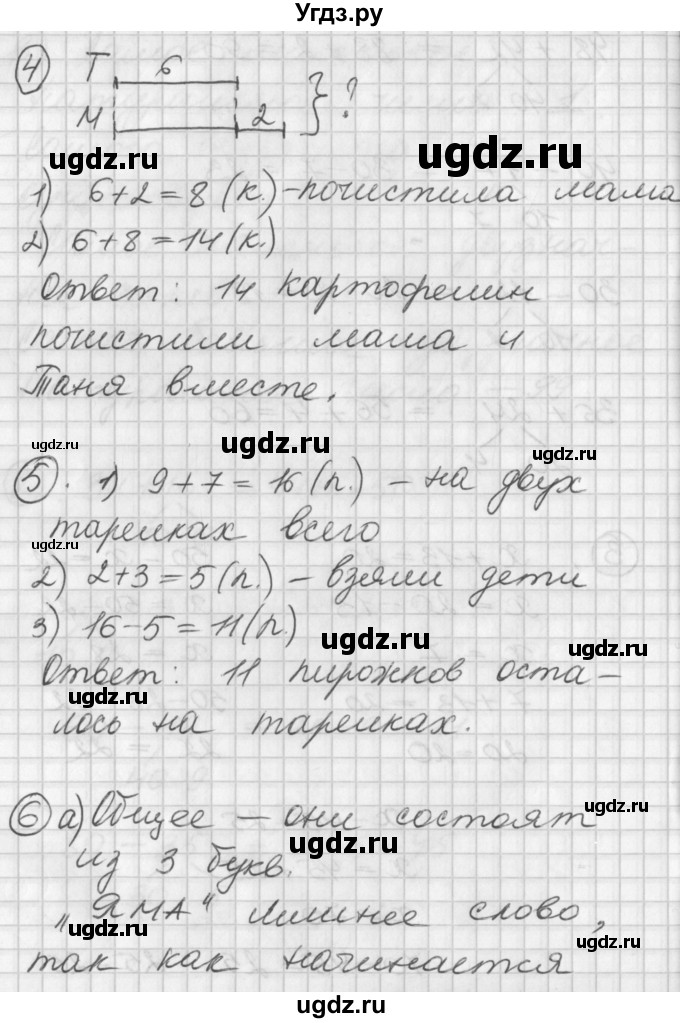 Угдз.ру
④ Т 6
М 2 } ?
ugdz.ru ugdz.ru
1) 6+2=8 (к.)-почистила мама
2) 6+8=14(к.)
Ответ: 14 картофелин
почистили мама и
Таня вместе.
ugdz.ru ugdz.ru
⑤. 1) 9+7=16(п.) – на двух
ugdz.ru
тарелках всего
2) 2+3=5(п.) – взяли дети
3) 16-5=11(п.)
ugdz.ru ugdz.ru
Ответ: 11 пирожков оста-
ugdz.ru
лось на тарелках.
⑥ а) Общее – они состоят
ugdz.ru
ugdz.ru
из 3 букв.
„ЯМА" лишнее слово,
ugdz.ru ugdz.ru
так как начинается
ugdz.ru